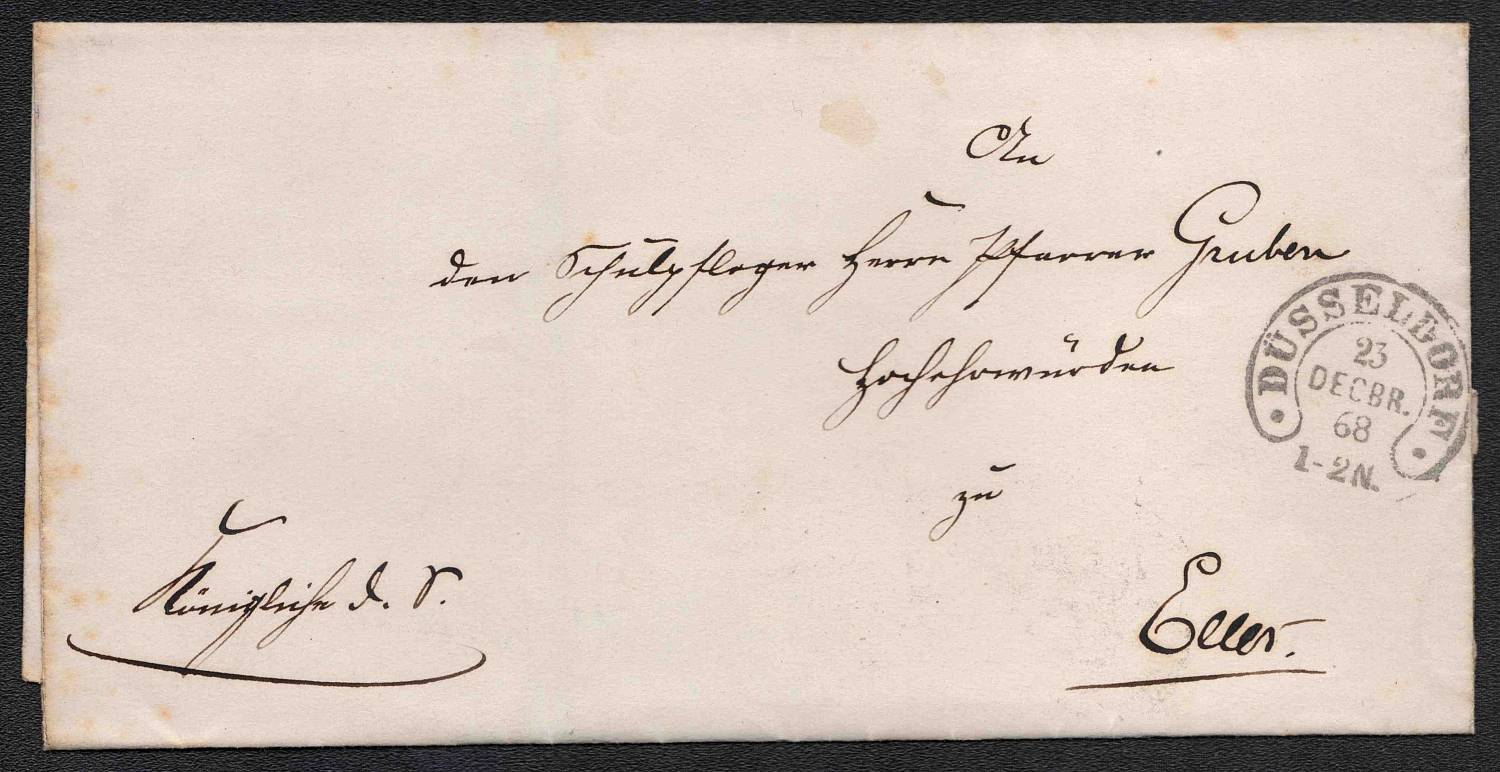 An
den Schulpfleger Herrn Pfarrer Gruben
Hochehrwürden
zu
Eller.
Königliche d. S.
DÜSSELDORF
23
DECBR.
68
1-2N.